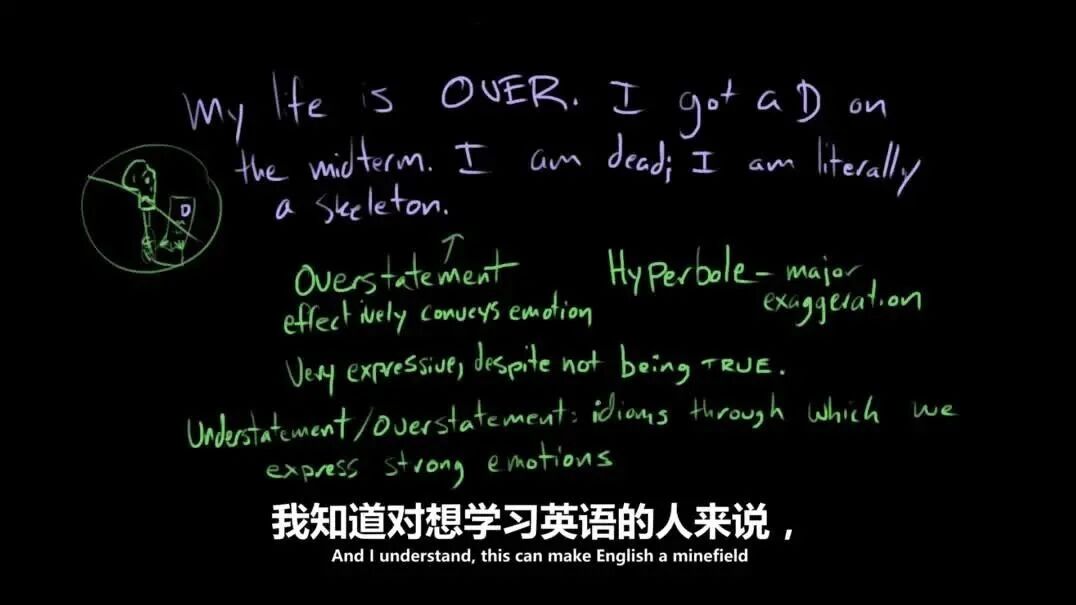 My life is OVER. I got a D on
the midterm. I am dead; I am literally
a skeleton.
D
Overstatement
effectively conveys emotion
Hyperbole - major
exaggeration
Very expressive, despite not being TRUE.
Understatement/Overstatement: idioms through which we
express strong emotions
我知道对想学习英语的人来说，
And I understand, this can make English a minefield